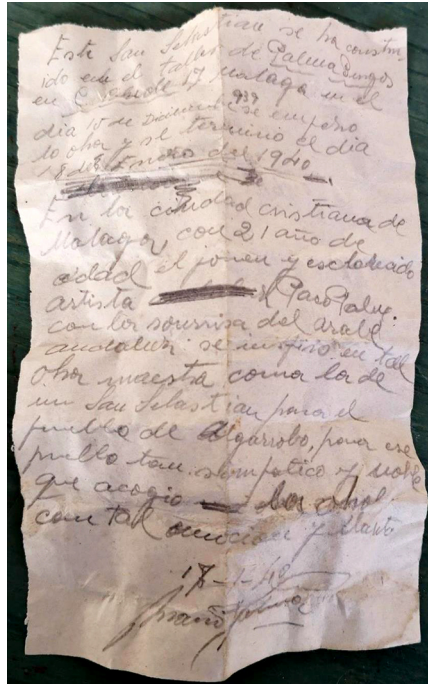 Este San Sebastian se ha constru-
ido en el taller de Palma Burgos
en 17 Malaga en el
dia 15 de Diciembre 939 se empeso
la obra y se termino el dia
18 de Enero del 1940
En la ciudad cristiana de
Malaga, con 21 año de
edad el joven y esclarecido
artista Paco Palma
con la sonrisa del arabe
andaluz se en tal
obra maestra como la de
un San Sebastian para el
pueblo de Algarrobo, para ese
pueblo tan simpatico y noble
que acogio la obra
con tal emocion y llanto
18-1-40
Palma